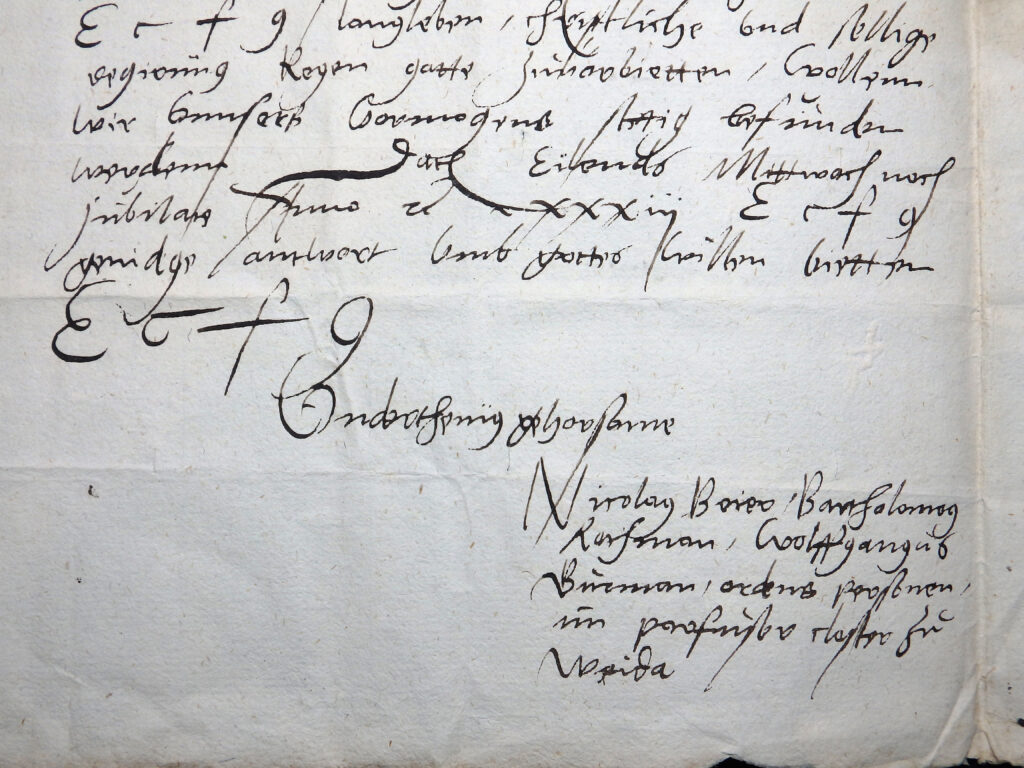 E c f g langleben, christliche vnd sellige
regirung kegen gotte zuuorbietten, Wollenn
wir vnnsers vormogens stetig befunden
werdenn Dach Eilends Mittwoch noch
jubilate Anno xxxiij E c f g
genidge antwort vmb gottes willen bietten
E c f g
Vnderthenig gehorsame
Nicolaus Beier, Bartholomeus
Wolffgangus
Burman, ordens personen,
im parfusser closter zu
Weida